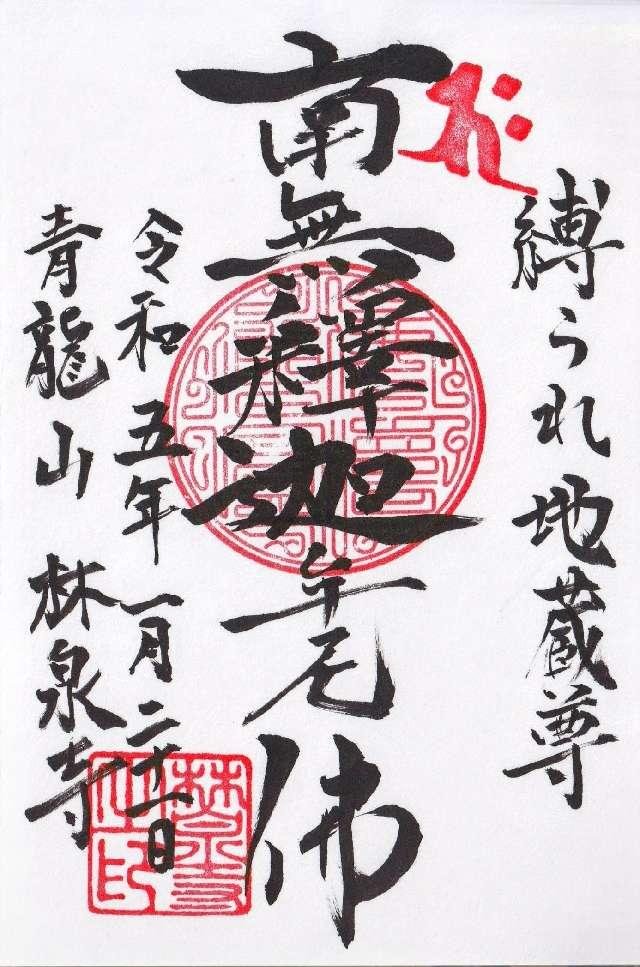 縛られ地蔵尊
南無釋迦牟尼佛
令和五年一月二十一日
青龍山 林泉寺
林泉寺
之印